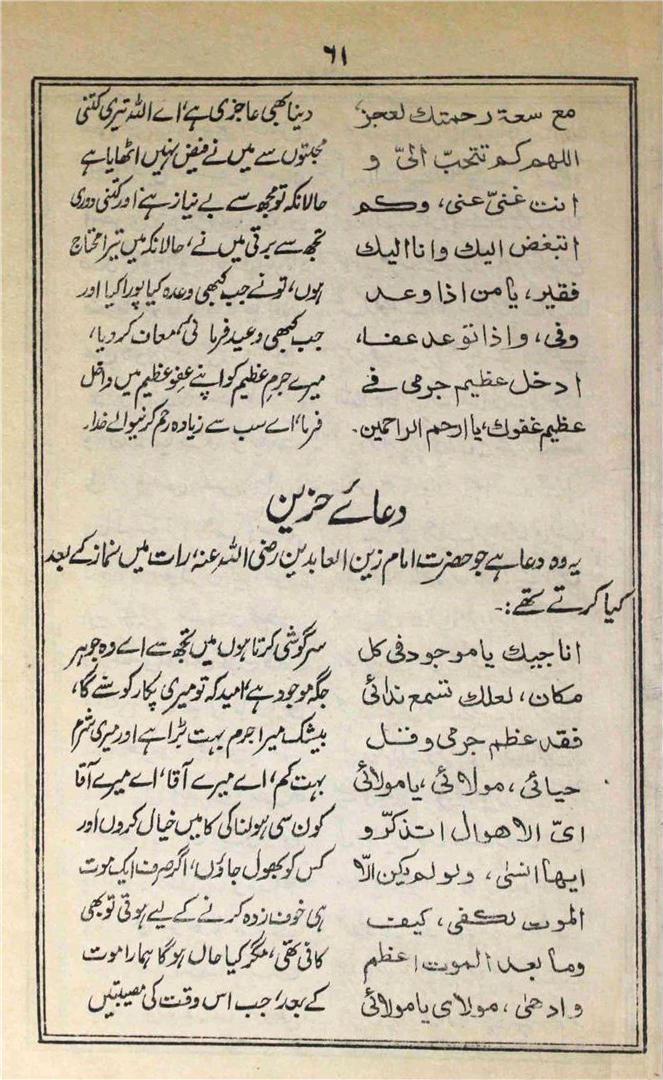 ۶۱
مع سعة رحمتك لعجز، دینا بھی عاجزی ہے، اے اللہ تیری کتنی
اللهم كم تتحبّ الیّ و محبتوں سے میں نے فیض نہیں اٹھایا ہے
انت غنیّ عنی، وكم حالانکہ تو مجھ سے بے نیاز ہے، اور کتنی دوری
اتبغض اليك وانا اليك تجھ سے برتی میں نے، حالانکہ میں تیرا محتاج
فقير، يا من اذا وعد ہوں، تو نے جب کبھی وعدہ کیا پورا کیا اور
وفی، واذا توعد عفا، جب کبھی وعید فرمائی معاف کر دیا،
ادخل عظيم جرمی فے میرے جرم عظیم کو اپنے عفو عظیم میں داخل
عظيم عفوك، يا ارحم الراحمين۔ فرما، اے سب سے زیادہ رحم کرنیوالے خدا۔
دعائے حزین
یہ وہ دعا ہے جو حضرت امام زین العابدین رضی اللہ عنہ، رات میں نماز کے بعد
کیا کرتے تھے:۔
اناجيك يا موجود فی كل سرگوشی کرتا ہوں میں تجھ سے اے وہ جو ہر
مكان، لعلك تسمع ندائی جگہ موجود ہے، امید کہ تو میری پکار کو سنے گا،
فقد عظم جرمی وقل بیشک میرا جرم بہت بڑا ہے اور میری شرم
حيائی، مولائی، يا مولائی بہت کم، اے میرے آقا، اے میرے آقا
ایّ الاهوال اتذكر و کون سی ہولناکی کا میں خیال کروں اور
ايها انسٰی، ولو لم يكن الّا کس کو بھول جاؤں، اگر صرف ایک موت
الموت لكفی، كيف ہی خوف زدہ کرنے کے لیے ہوتی تو بھی
وما بعد الموت اعظم کافی تھی، مگر کیا حال ہوگا ہمارا موت
وادهیٰ، مولای يا مولائی کے بعد، جب اس وقت کی مصیبتیں